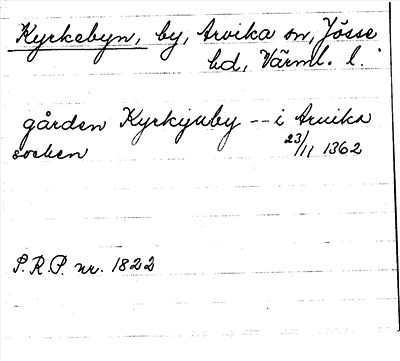 Kyrkebyn, by, Arvika sn, Jösse
hd, Värml. l.
gården Kyrkjuby -- i Arvika
socken 23/11 1362
S.R.P. nr. 1822